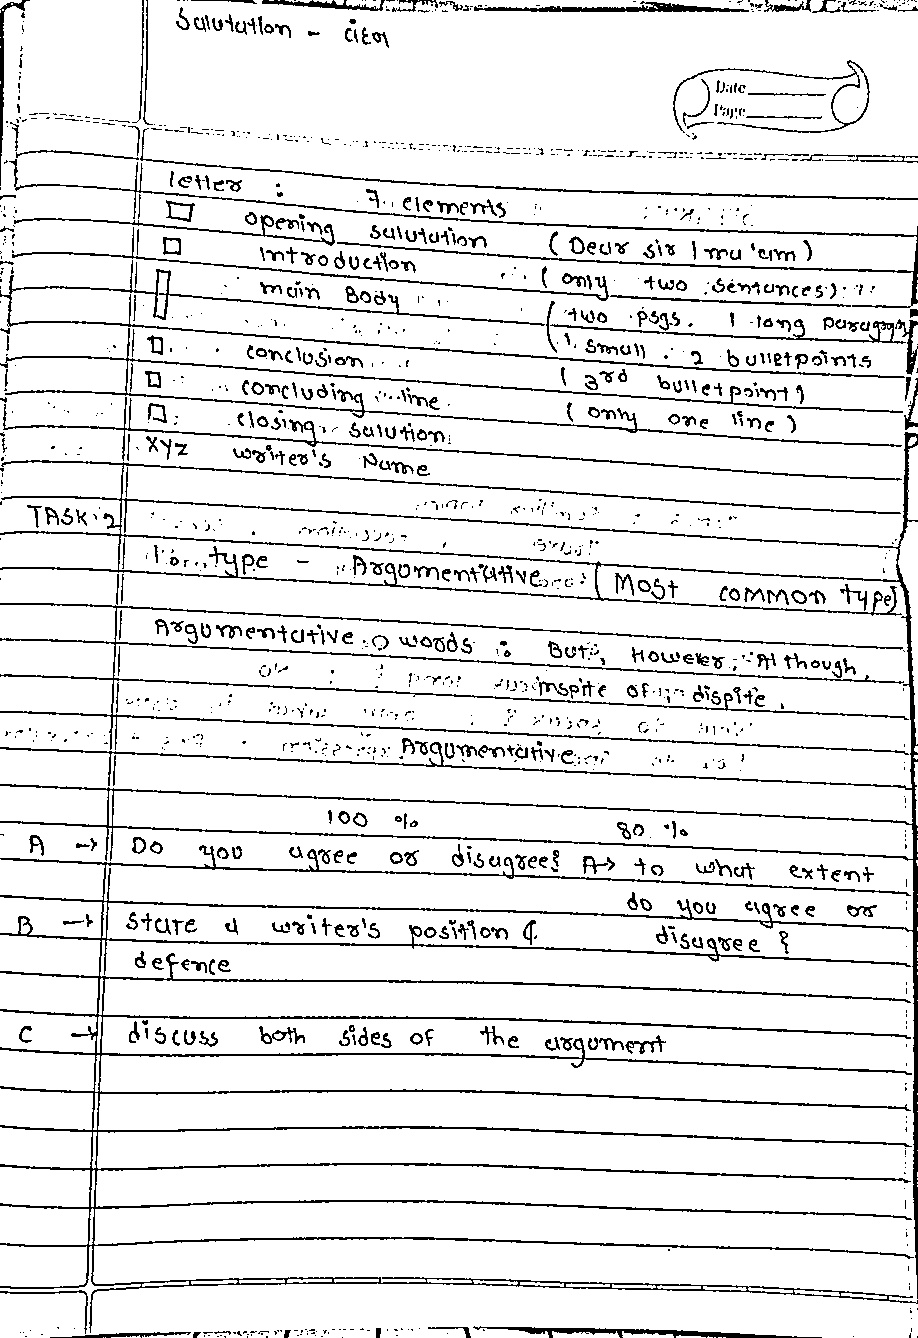 Salutation - વંદન
Date
Page
letter : 7 elements
opening salutation (Dear sir / ma'am)
Introduction (only two sentances)
main Body (two psgs. 1 long paragraph
(1 small : 2 bulletpoints
conclusion (3rd bulletpoint)
concluding line (only one line)
closing salution
XYZ writer's Name
TASK:2
type - Argumentative (Most common type)
Argumentative words : But, However, Although,
inspite of dispite.
Argumentative
100 % 80 %
A → Do you agree or disagree? A→ to what extent
do you agree or
B → state a writer's position & disagree ?
defence
C → discuss both sides of the argument